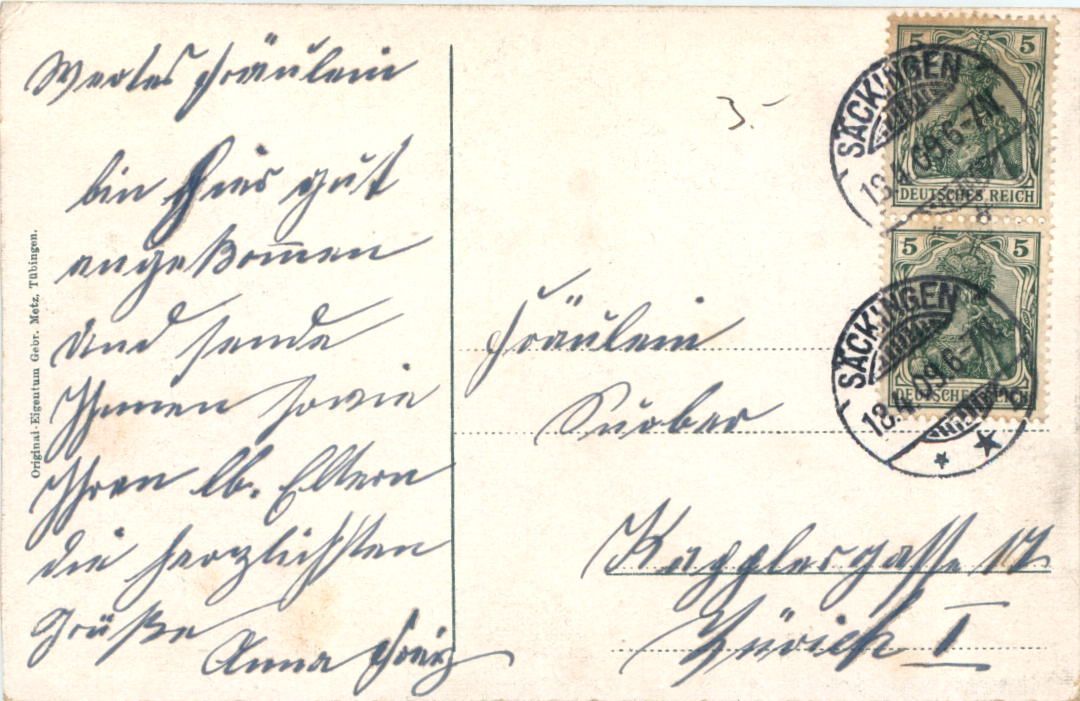 Wertes Fräulein
bin hier gut
angekommen
und sende
Ihnen sowie
Ihren lb. Eltern
die herzlichsten
Grüße
Anna
Original-Eigentum Gebr. Metz, Tübingen.
3.-
5 5
SÄCKINGEN
18.4.09.6-7N
DEUTSCHES REICH
5 5
SÄCKINGEN
18.4.09.6-7N
DEUTSCHES REICH
Fräulein
Kapplergasse 17
Zürich I